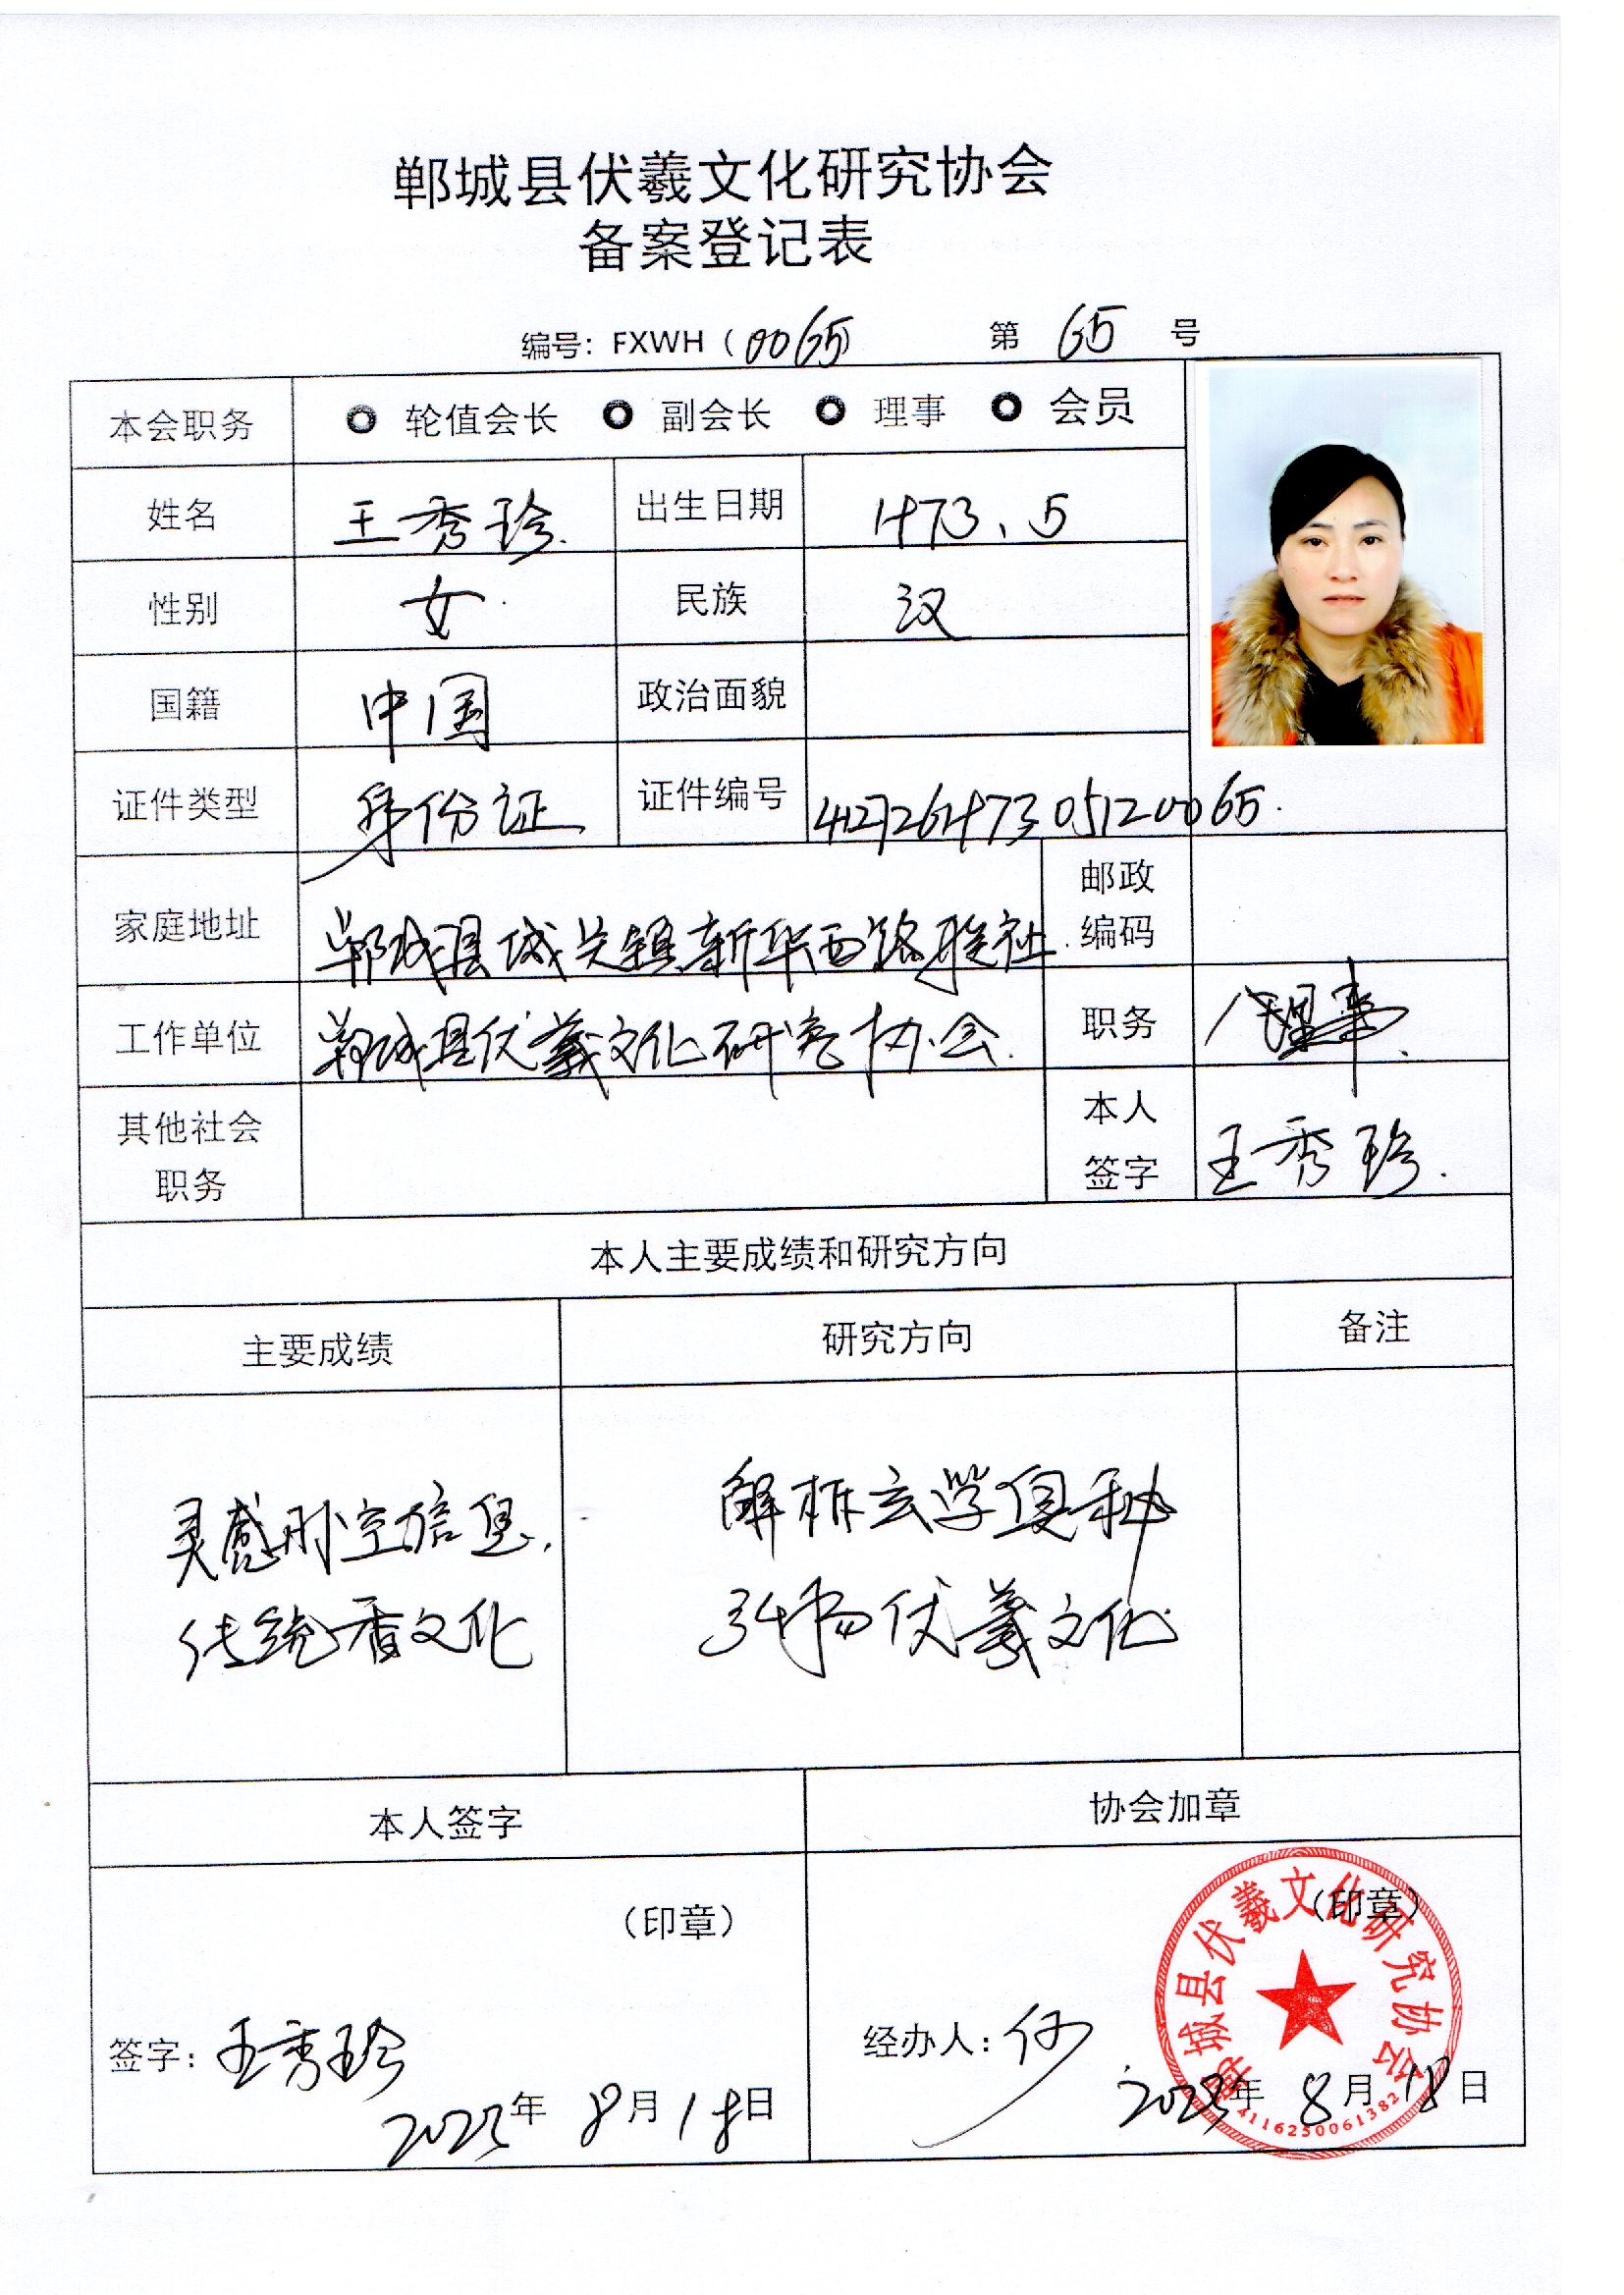 郸城县伏羲文化研究协会
备案登记表
编号：FXWH（0065） 第 65 号
本会职务 轮值会长 副会长 理事 会员
姓名 王秀珍 出生日期 1973、5
性别 女 民族 汉
国籍 中国 政治面貌
证件类型 身份证 证件编号
家庭地址 郸城县城关镇新华西路联社 邮政编码
工作单位 郸城县伏羲文化研究协会 职务 理事
其他社会职务 本人签字 王秀珍
本人主要成绩和研究方向
主要成绩 研究方向 备注
灵感时空信息， 解析玄学奥秘
传统香文化 弘扬伏羲文化
本人签字 协会加章
（印章） （印章）
郸城县伏羲文化研究协会
签字：王秀珍 经办人：
2023年 8月18日 2023年 8月18日
4116250061382